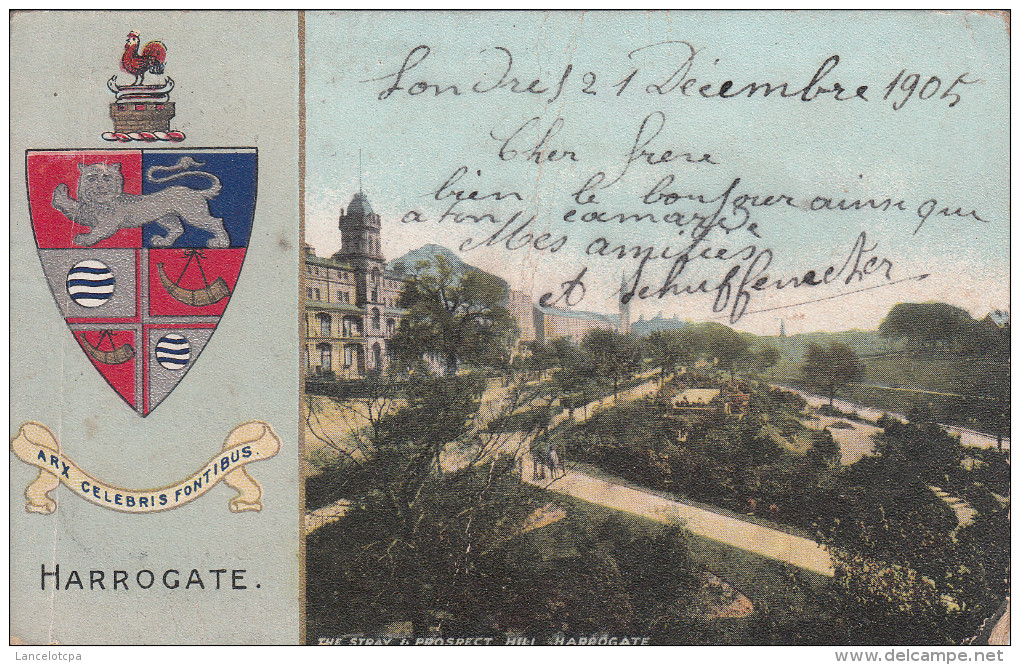 ARX CELEBRIS FONTIBUS.
HARROGATE.
Londres 21 Décembre 1905
Cher frère
bien le bonjour ainsi qui
a ton camarade
Mes amitiés
et Schuffenecker
THE STRAY & PROSPECT HILL HARROGATE
Lancelotcpa
www.delcampe.net